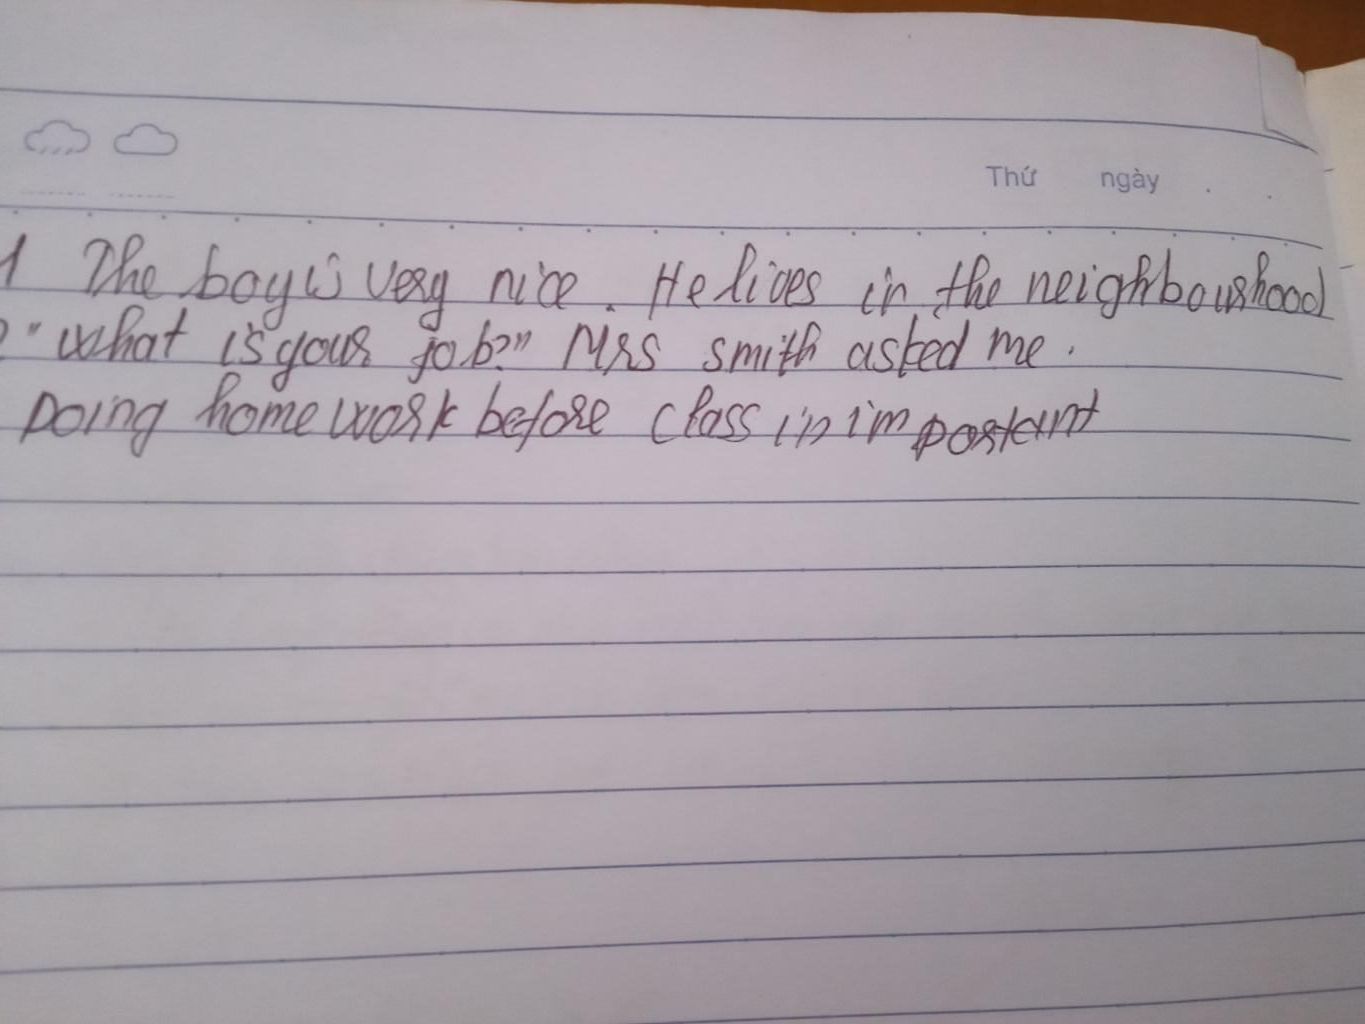 Thứ ngày
1 The boy is very nice. He lives in the neighbourhood
2 "what is your job?" Mrs smith asked me.
Doing home work before class in important